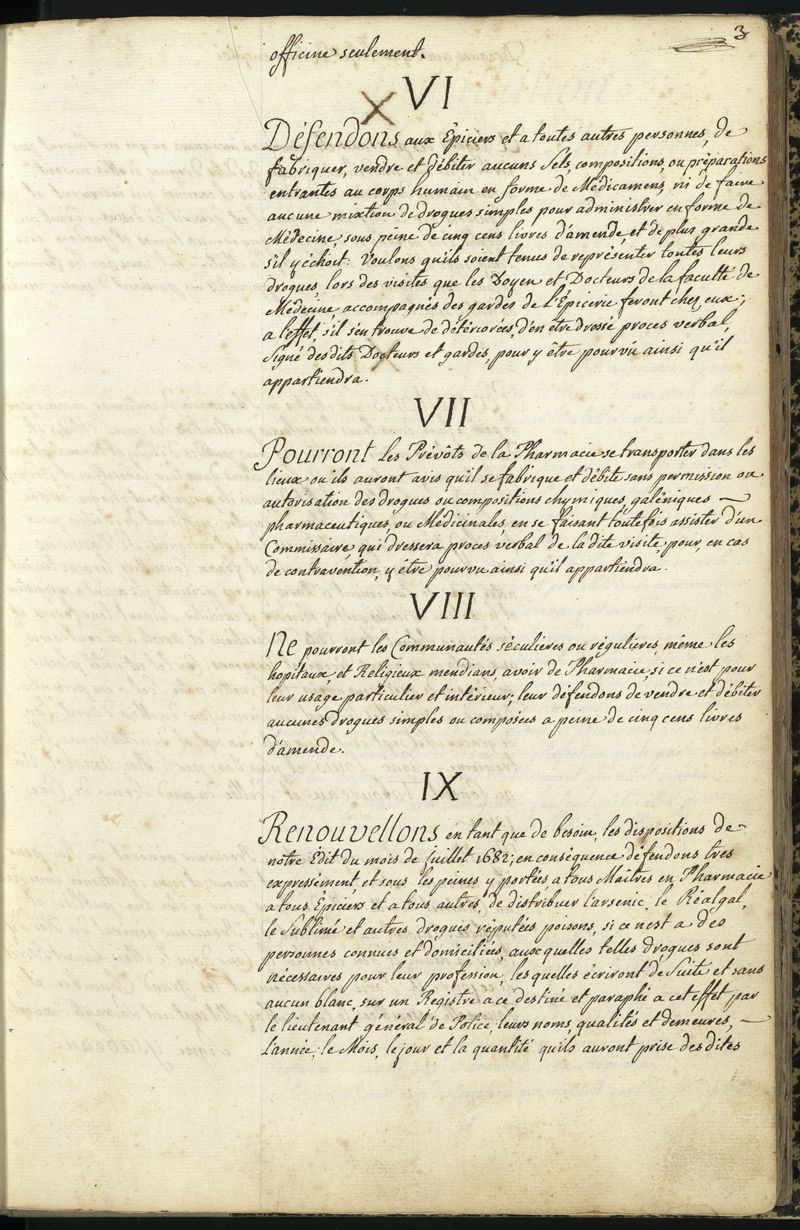 3
officine seulement.
VI
Défendons aux Épiciers et a toutes autres personnes, de
fabriquer, vendre et débiter aucuns Sels, compositions, ou préparations
entrantes au corps humain en forme de Médicamens, ni de faire
aucune mixtion de drogues simples pour administrer en forme de
Médecine, sous peine de cinq cens livres d'amende, et de plus grande
s'il y échoit: Voulons qu'ils soient tenus de représenter toutes leurs
drogues, lors des visites que les Doyen et Docteurs de la faculté de
Médecine, accompagnés des gardes de l'Épicerie feront chez eux;
a l'effet, s'il s'en trouve de détériorées, d'en etre dressé proces verbal,
Signé desdits Docteurs et gardes, pour y être pourvû ainsi qu'il
appartiendra.
VII
Pourront les Prévôts de la Pharmacie se transporter dans les
lieux ou ils auront avis qu'il se fabrique et débite sans permission ou
autorisation des drogues ou compositions chymiques, galéniques
pharmaceutiques, ou Médicinales, en se faisant toutefois assister d'un
Commissaire, qui dressera proces verbal de la dite visite, pour, en cas
de contravention, y être pourvu ainsi qu'il appartiendra.
VIII
Ne pourront les Communautés séculieres ou régulieres, même les
hopitaux, et Religieux mendians, avoir de Pharmacie, si ce n'est pour
leur usage particulier et intérieur; leur défendons de vendre et débiter
aucunes drogues simples ou composées a peine de cinq cens livres
d'amende.
IX
Renouvellons en tant que de besoin, les dispositions de
notre Édit du mois de Juillet 1682; en conséquence défendons tres
expressément, et sous les peines y portées, a tous Maîtres en Pharmacie
a tous Épiciers et a tous autres, de distribuer l'arsenic, le Réalgal,
le Sublimé et autres drogues réputées poisons, si ce n'est a des
personnes connues et domiciliées, aux quelles telles drogues sont
nécessaires pour leur profession, les quelles écriront de Suite et sans
aucun blanc, sur un Registre a ce destiné et paraphé a cet effet par
le lieutenant général de Police, leurs noms, qualités et demeures,
l'année, le Mois, le jour et la quantité qu'ils auront prise desdites